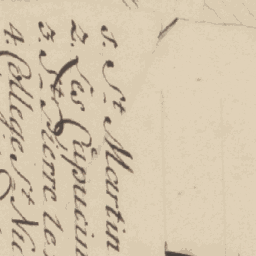 1. St. Martin
2. Les Capucin
3. St. Pierre le
4. College St Nic